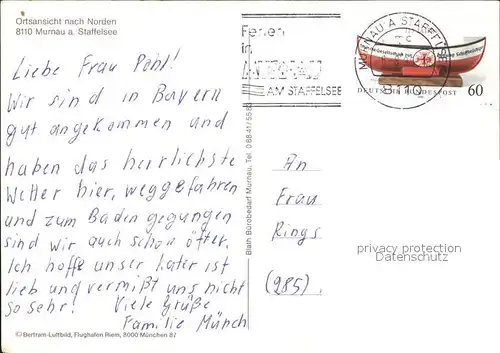 Ortsansicht nach Norden
8110 Murnau a. Staffelsee
Liebe Frau Pohl!
Wir sind in Bayern
gut angekommen und
haben das herrlichste
Wetter hier, weggefahren
und zum Baden gegangen
sind wir auch schon öfter.
Ich hoffe unser Kater ist
lieb und vermißt uns nicht
so sehr! Viele Grüße
Familie Münch
© Bertram-Luftbild, Flughafen Riem, 8000 München 87
Blath Bürobedarf Murnau, Tel. 0 88 41/55 83
Ferien
in
MURNAU
AM STAFFELSEE
MURNAU A STAFFELSEE
8110
DEUTSCHE BUNDESPOST 60
An
Frau
Rings
(285)
privacy protection
Datenschutz